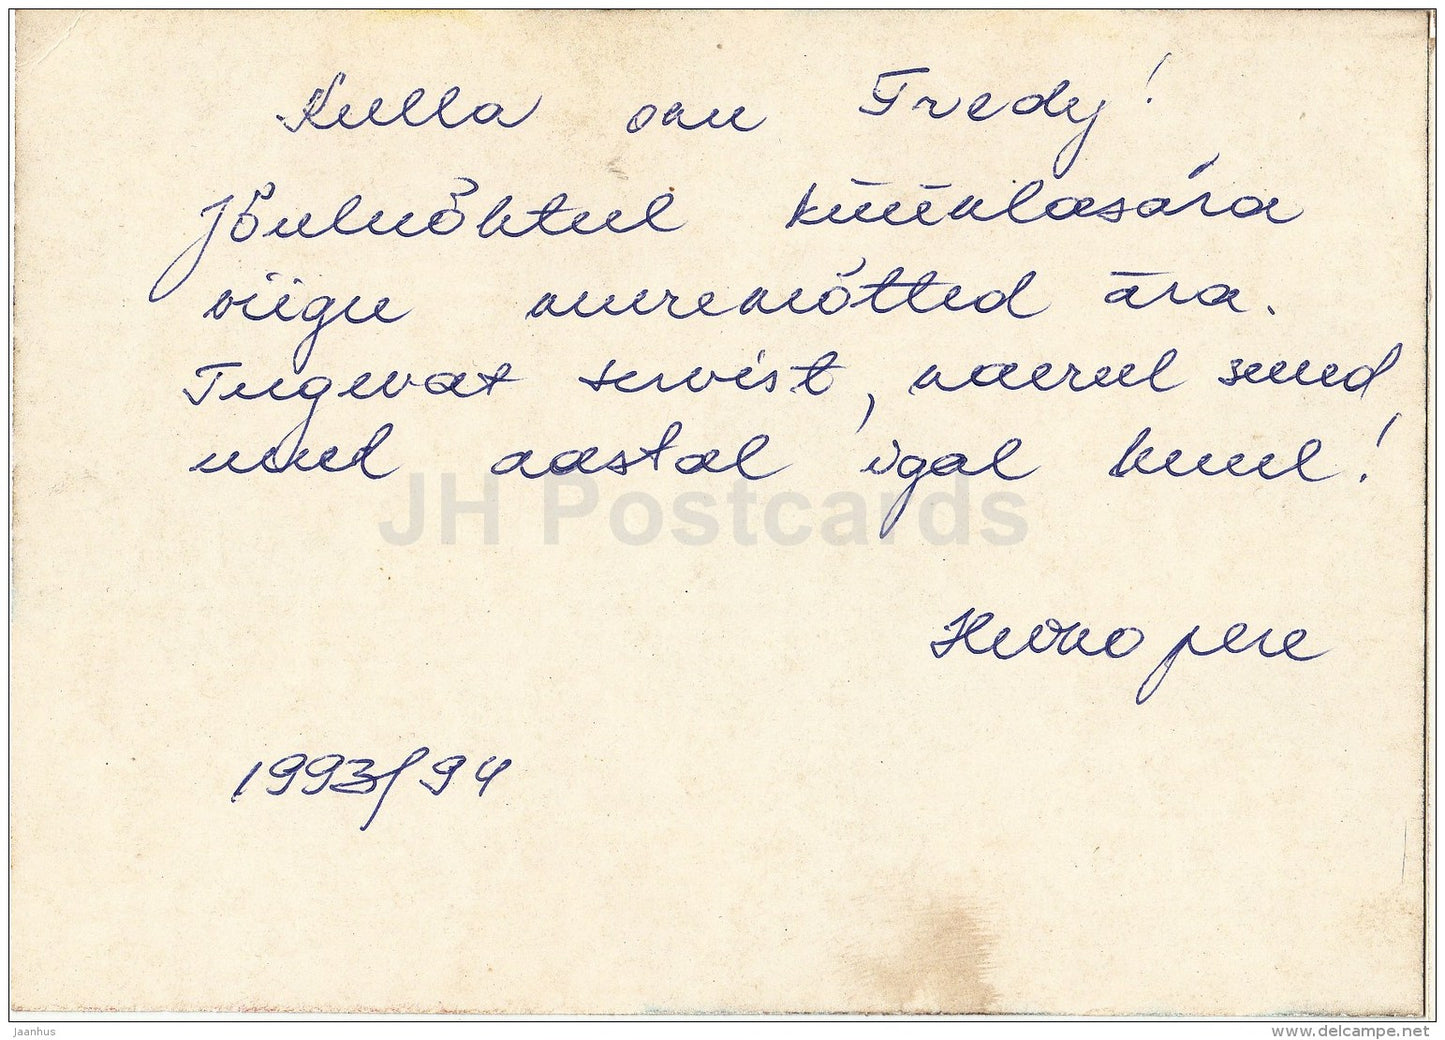 Kulla onu Fredy!
Jõuluõhtul küünlasära
viigu muremõtted ära.
Tugevat tervist, naerul suud
uuel aastal igal kuul!
Heiko pere
1993/94
JH Postcards
jaanhus
www.delcampe.net